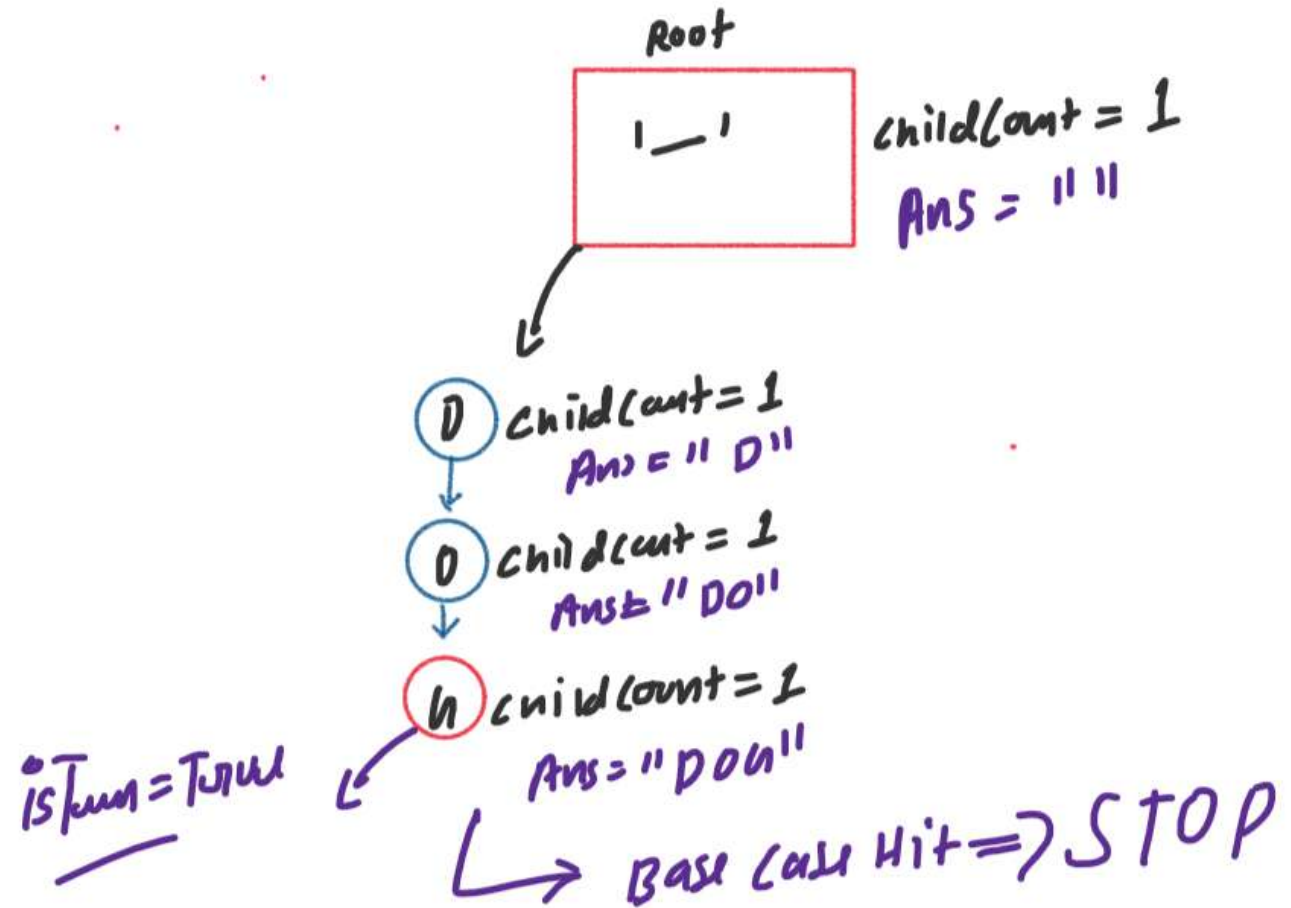 Root
'_'
childCount = 1
Ans = " "
D childCount = 1
Ans = "D"
O childCount = 1
Ans = "DO"
G childCount = 1
Ans = "DOG"
isTerm = True
Base Case Hit => STOP